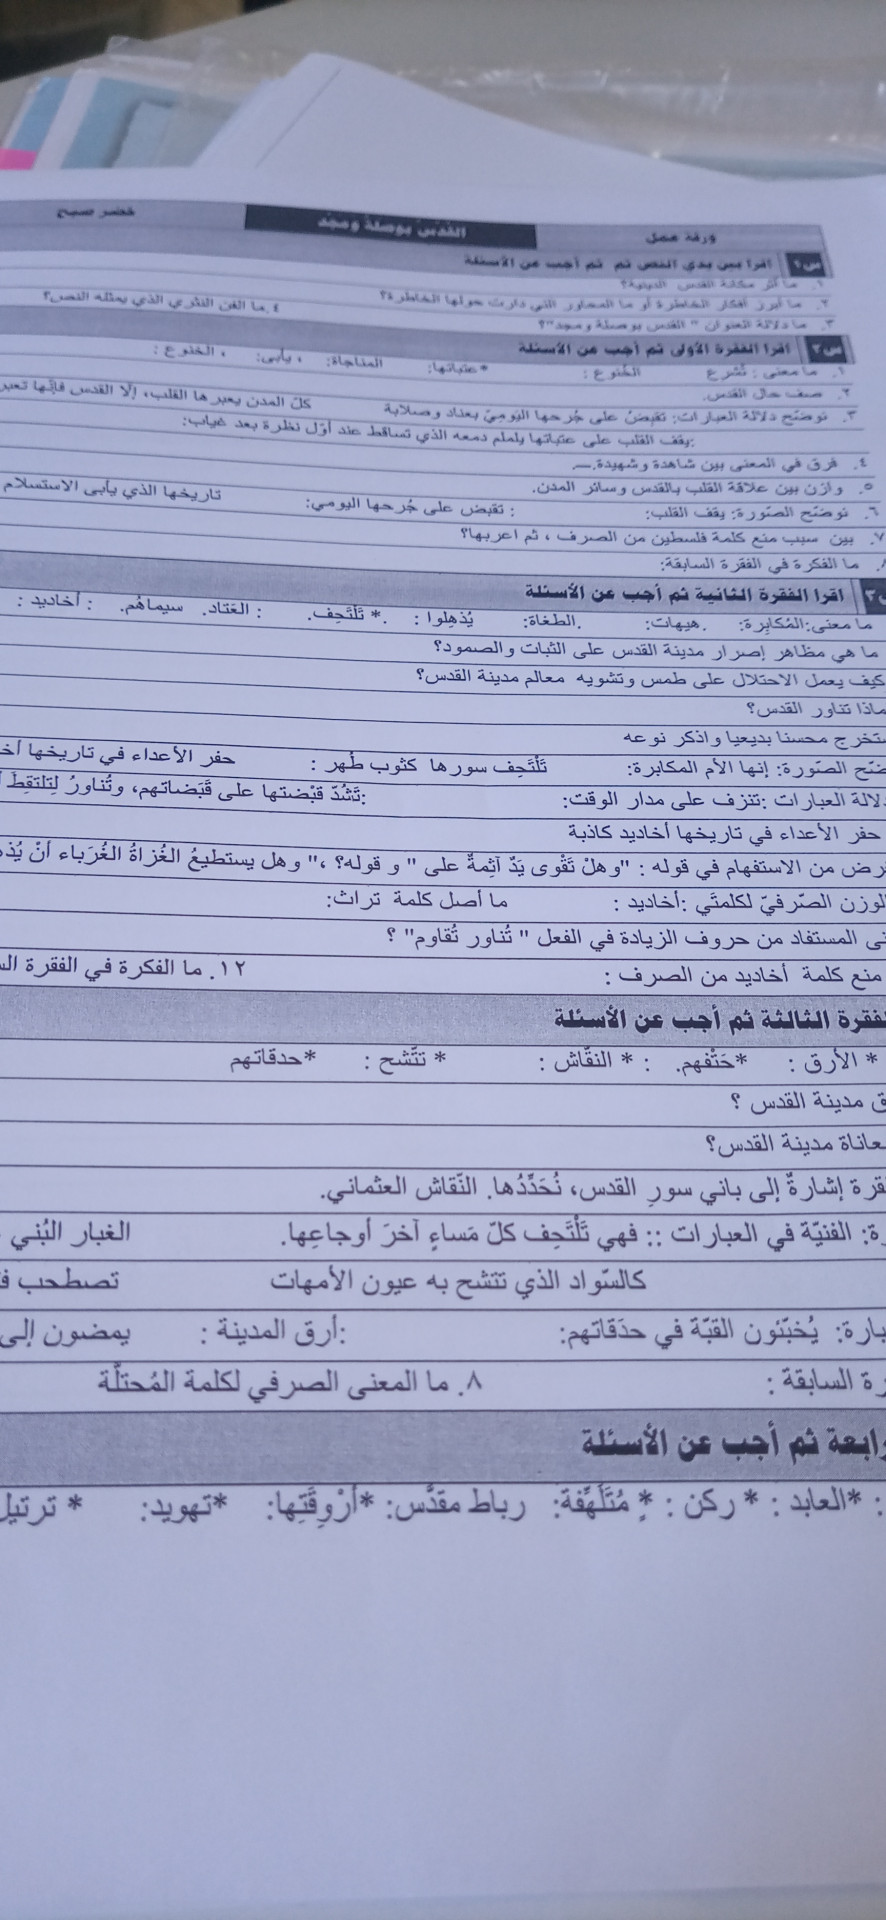 ورقة عمل القدس بوصلة ومجد خضر صبح
س١ اقرا بين يدي النص ثم ثم أجب عن الأسئلة
١. ما أثر مكانة القدس الدينية؟
٢. ما أبرز أفكار الخاطرة أو ما المحاور التي دارت حولها الخاطرة؟ ٤. ما الفن النثري الذي يمثله النص؟
٣. ما دلالة العنوان " القدس بوصلة ومجد"؟
س٢ اقرا الفقرة الأولى ثم أجب عن الأسئلة
١. ما معنى : تُشرع الخُنوع : *عتباتها: المناجاة: ، يأبى: ، الخنوع :
٢. صف حال القدس.
٣. نوضّح دلالة العبارات: تقبضُ على جُرحها اليَوميّ بعناد وصلابة كلّ المدن يعبرها القلب، إلّا القدس فإنّها تعبر
يقف القلب على عتباتها يلملم دمعه الذي تساقط عند أوّل نظرة بعد غياب:
٤. فرق في المعنى بين شاهدة وشهيدة.
٥. وازن بين علاقة القلب بالقدس وسائر المدن.
٦. نوضّح الصّورة: يقف القلب: تقبض على جُرحها اليومي: تاريخها الذي يأبى الاستسلام
٧. بين سبب منع كلمة فلسطين من الصرف ، ثم اعربها؟
ما الفكرة في الفقرة السابقة:
اقرا الفقرة الثانية ثم أجب عن الأسئلة
ما معنى:المُكابِرة: هيهات: الطغاة: يُذهِلوا : * تَلْتَحِف. : العَتاد. سيماهُم. : أخاديد :
ما هي مظاهر إصرار مدينة القدس على الثبات والصمود؟
كيف يعمل الاحتلال على طمس وتشويه معالم مدينة القدس؟
ماذا تناور القدس؟
ستخرج محسنا بديعيا واذكر نوعه
ضّح الصّورة: إنها الأم المكابرة: تَلْتَحِف سورها كثوب طُهر : حفر الأعداء في تاريخها
دلالة العبارات :تنزف على مدار الوقت: تَشُدّ قبْضتها على قَبَضاتهم، وتُناورُ لِتلتقِطَ
حفر الأعداء في تاريخها أخاديد كاذبة
من الاستفهام في قوله : "وهلْ تَقْوى يَدٌ آثِمةٌ على " و قوله؟ ،" وهل يستطيعُ الغُزاةُ الغُرَباء أنْ
الوزن الصّرفيّ لكلمتَي :أخاديد : ما أصل كلمة تراث:
المستفاد من حروف الزيادة في الفعل " تُناور تُقاوم" ؟
منع كلمة أخاديد من الصرف : ١٢. ما الفكرة في الفقرة
الفقرة الثالثة ثم أجب عن الأسئلة
* الأرق : *حَتْفهم. : * النقّاش : * تتّشح : *حدقاتهم
مدينة القدس ؟
مدينة القدس؟
إشارةٌ إلى باني سورِ القدس، نُحَدِّدُها. النّقاش العثماني.
الفنيّة في العبارات :: فهي تَلْتَحِف كلّ مَساءٍ آخرَ أوجاعِها. الغبار البُني
كالسّواد الذي تتشح به عيون الأمهات تصطحب
يُخبّئون القبّة في حدَقاتهم: :أرق المدينة : يمضون إلى
السابقة : ٨. ما المعنى الصرفي لكلمة المُحتلّة
ثم أجب عن الأسئلة
: *العابد : * ركن : * مُتَلَهِّفة: رباط مقدَّس: *أرْوِقَتِها: *تهويد: * ترتيل